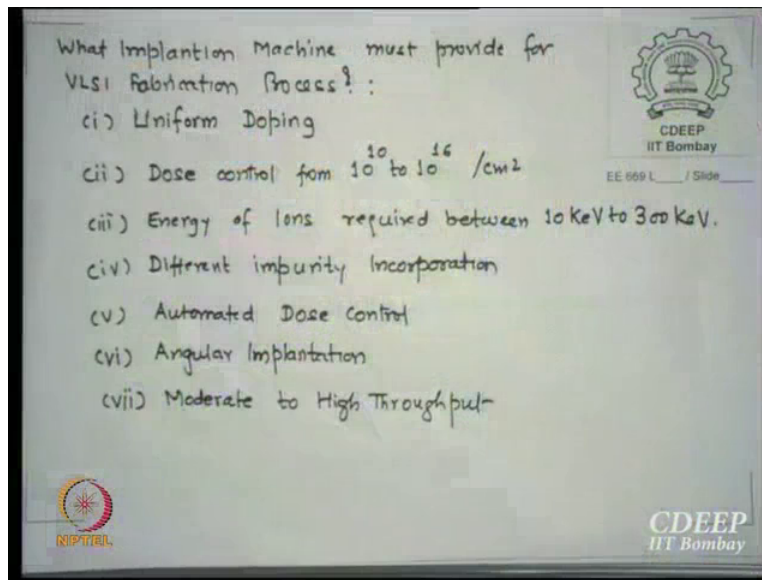 What Implantion Machine must provide for
VLSI Fabrication Process? :
(i) Uniform Doping
(ii) Dose control fom 10^10 to 10^16 /cm2
(iii) Energy of Ions required between 10 KeV to 300 KeV.
(iv) Different impurity Incorporation
(v) Automated Dose Control
(vi) Angular Implantation
(vii) Moderate to High Throughput
CDEEP
IIT Bombay
EE 669 L____ / Slide____
NPTEL
CDEEP
IIT Bombay